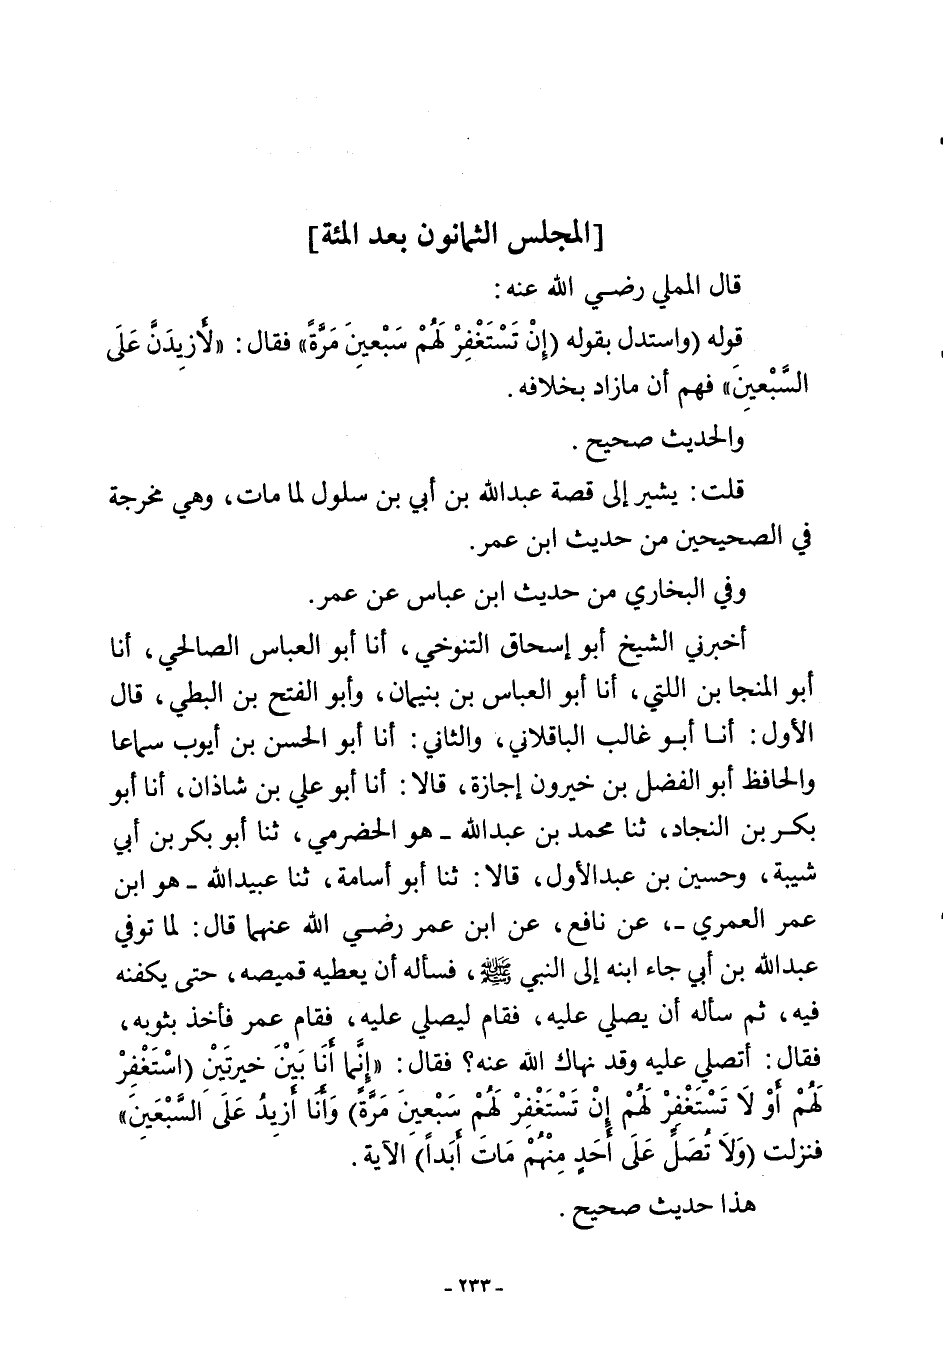 [المجلس الثمانون بعد المئة]
قال المملي رضي الله عنه:
قوله (واستدل بقوله (إِنْ تَسْتَغْفِرْ لَهُمْ سَبْعينَ مَرَّةً» فقال: «لَأزيدَنَّ عَلَى
السَّبْعينَ» فهم أن مازاد بخلافه.
والحديث صحيح.
قلت: يشير إلى قصة عبدالله بن أبي بن سلول لما مات، وهي مخرجة
في الصحيحين من حديث ابن عمر.
وفي البخاري من حديث ابن عباس عن عمر.
أخبرني الشيخ أبو إسحاق التنوخي، أنا أبو العباس الصالحي، أنا
أبو المنجا بن اللتي، أنا أبو العباس بن بنيمان، وأبو الفتح بن البطي، قال
الأول: أنا أبو غالب الباقلاني، والثاني: أنا أبو الحسن بن أيوب سماعا
والحافظ أبو الفضل بن خيرون إجازة، قالا: أنا أبو علي بن شاذان، أنا أبو
بكر بن النجاد، ثنا محمد بن عبدالله ـ هو الحضرمي، ثنا أبو بكر بن أبي
شيبة، وحسين بن عبدالأول، قالا: ثنا أبو أسامة، ثنا عبيدالله ـ هو ابن
عمر العمري ـ، عن نافع، عن ابن عمر رضي الله عنهما قال: لما توفي
عبدالله بن أبي جاء ابنه إلى النبي ﷺ، فسأله أن يعطيه قميصه، حتى يكفنه
فيه، ثم سأله أن يصلي عليه، فقام ليصلي عليه، فقام عمر فأخذ بثوبه،
فقال: أتصلي عليه وقد نهاك الله عنه؟ فقال: «إِنَّما أَنَا بَيْنَ خيرتَيْن (اسْتَغْفِرْ
لَهُمْ أَوْ لَا تَسْتَغْفِرْ لَهُمْ إِنْ تَسْتَغْفِرْ لَهُمْ سَبْعينَ مَرَّةً) وَأَنَا أَزيدُ عَلَى السَّبْعَينَ»
فنزلت (وَلَا تُصَلِّ عَلَى أَحَدٍ مِنْهُمْ مَاتَ أَبَداً) الآية.
هذا حديث صحيح.
ـ ٢٣٣ ـ